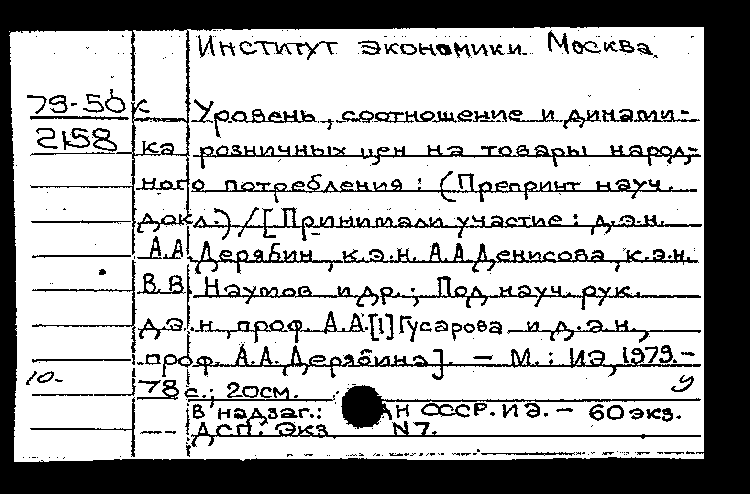 Институт экономики. Москва
79-50к
2158
Уровень, соотношение и динами-
ка розничных цен на товары народ-
ного потребления: (Препринт науч.
докл.) / [Принимали участие: д.э.н.
А.А. Дерябин, к.э.н. А.А. Денисова, к.э.н.
В.В. Наумов и др.; Под науч. рук.
д.э.н., проф. А.А.[!] Гусарова и д.э.н.,
проф. А.А. Дерябина]. - М.: ИЭ, 1979.-
10.-
78 с.; 20см.
В надзаг.: АН СССР. ИЭ. - 60 экз.
ДСП. Экз. N 7.